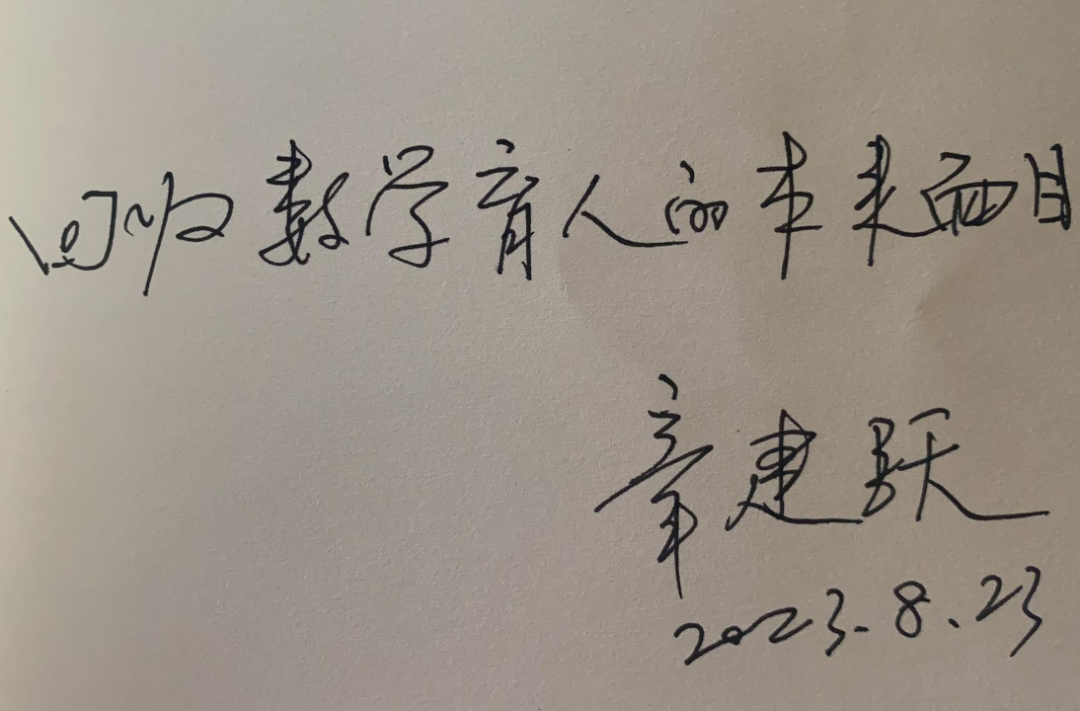 回归数学育人的本来面目
章建跃
2023.8.23